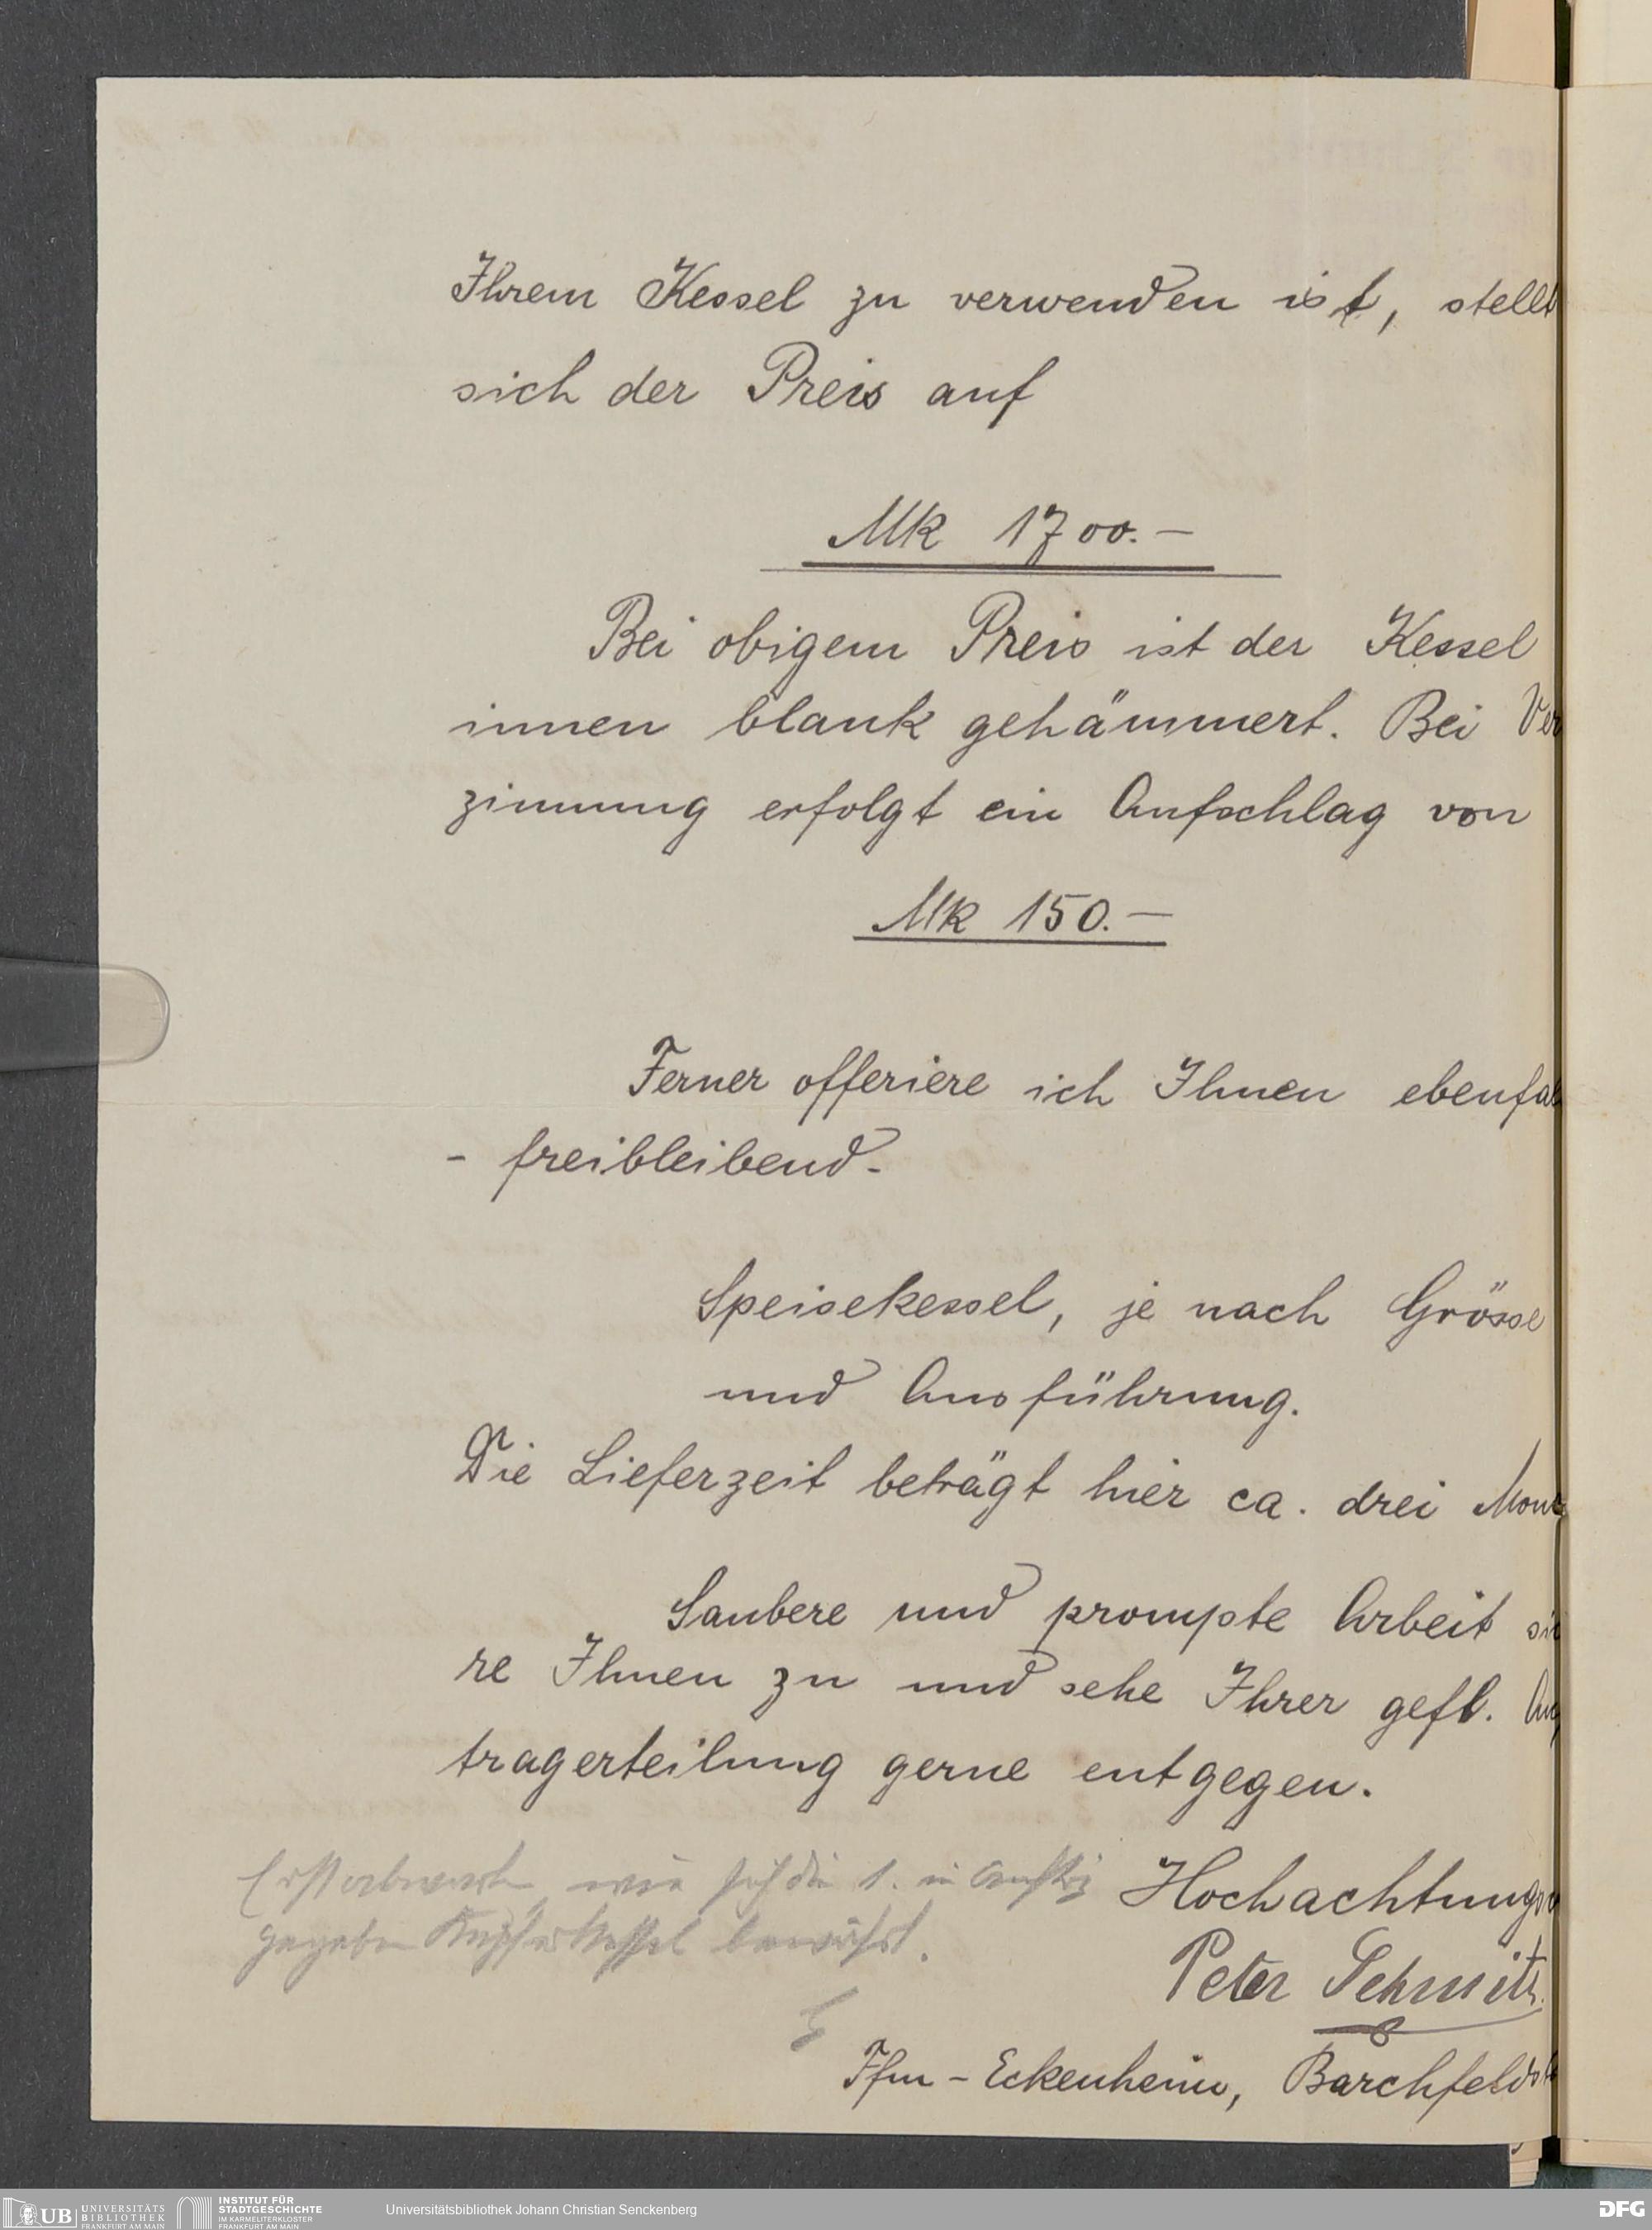 Ihrem Kessel zu verwenden ist, stellt
sich der Preis auf
Mk 1700.—
Bei obigem Preis ist der Kessel
innen blank gehämmert. Bei Ver
zinnung erfolgt ein Aufschlag von
Mk 150.—
Ferner offeriere ich Ihnen ebenfal
- freibleibend -
Speisekessel, je nach Grösse
und Ausführung.
Die Lieferzeit beträgt hier ca. drei Mona
Saubere und prompte Arbeit si
re Ihnen zu und sehe Ihrer gefl. Auf
tragerteilung gerne entgegen.
Erst abwarten wie sich die 1. in Auftrag
gegeben Kupferkessel bewährt.
Hochachtungsv
Peter Schmitz.
Ffm - Eckenheim, Barchfeldst
UB UNIVERSITÄTS
BIBLIOTHEK
FRANKFURT AM MAIN
INSTITUT FÜR
STADTGESCHICHTE
IM KARMELITERKLOSTER
FRANKFURT AM MAIN
Universitätsbibliothek Johann Christian Senckenberg
DFG